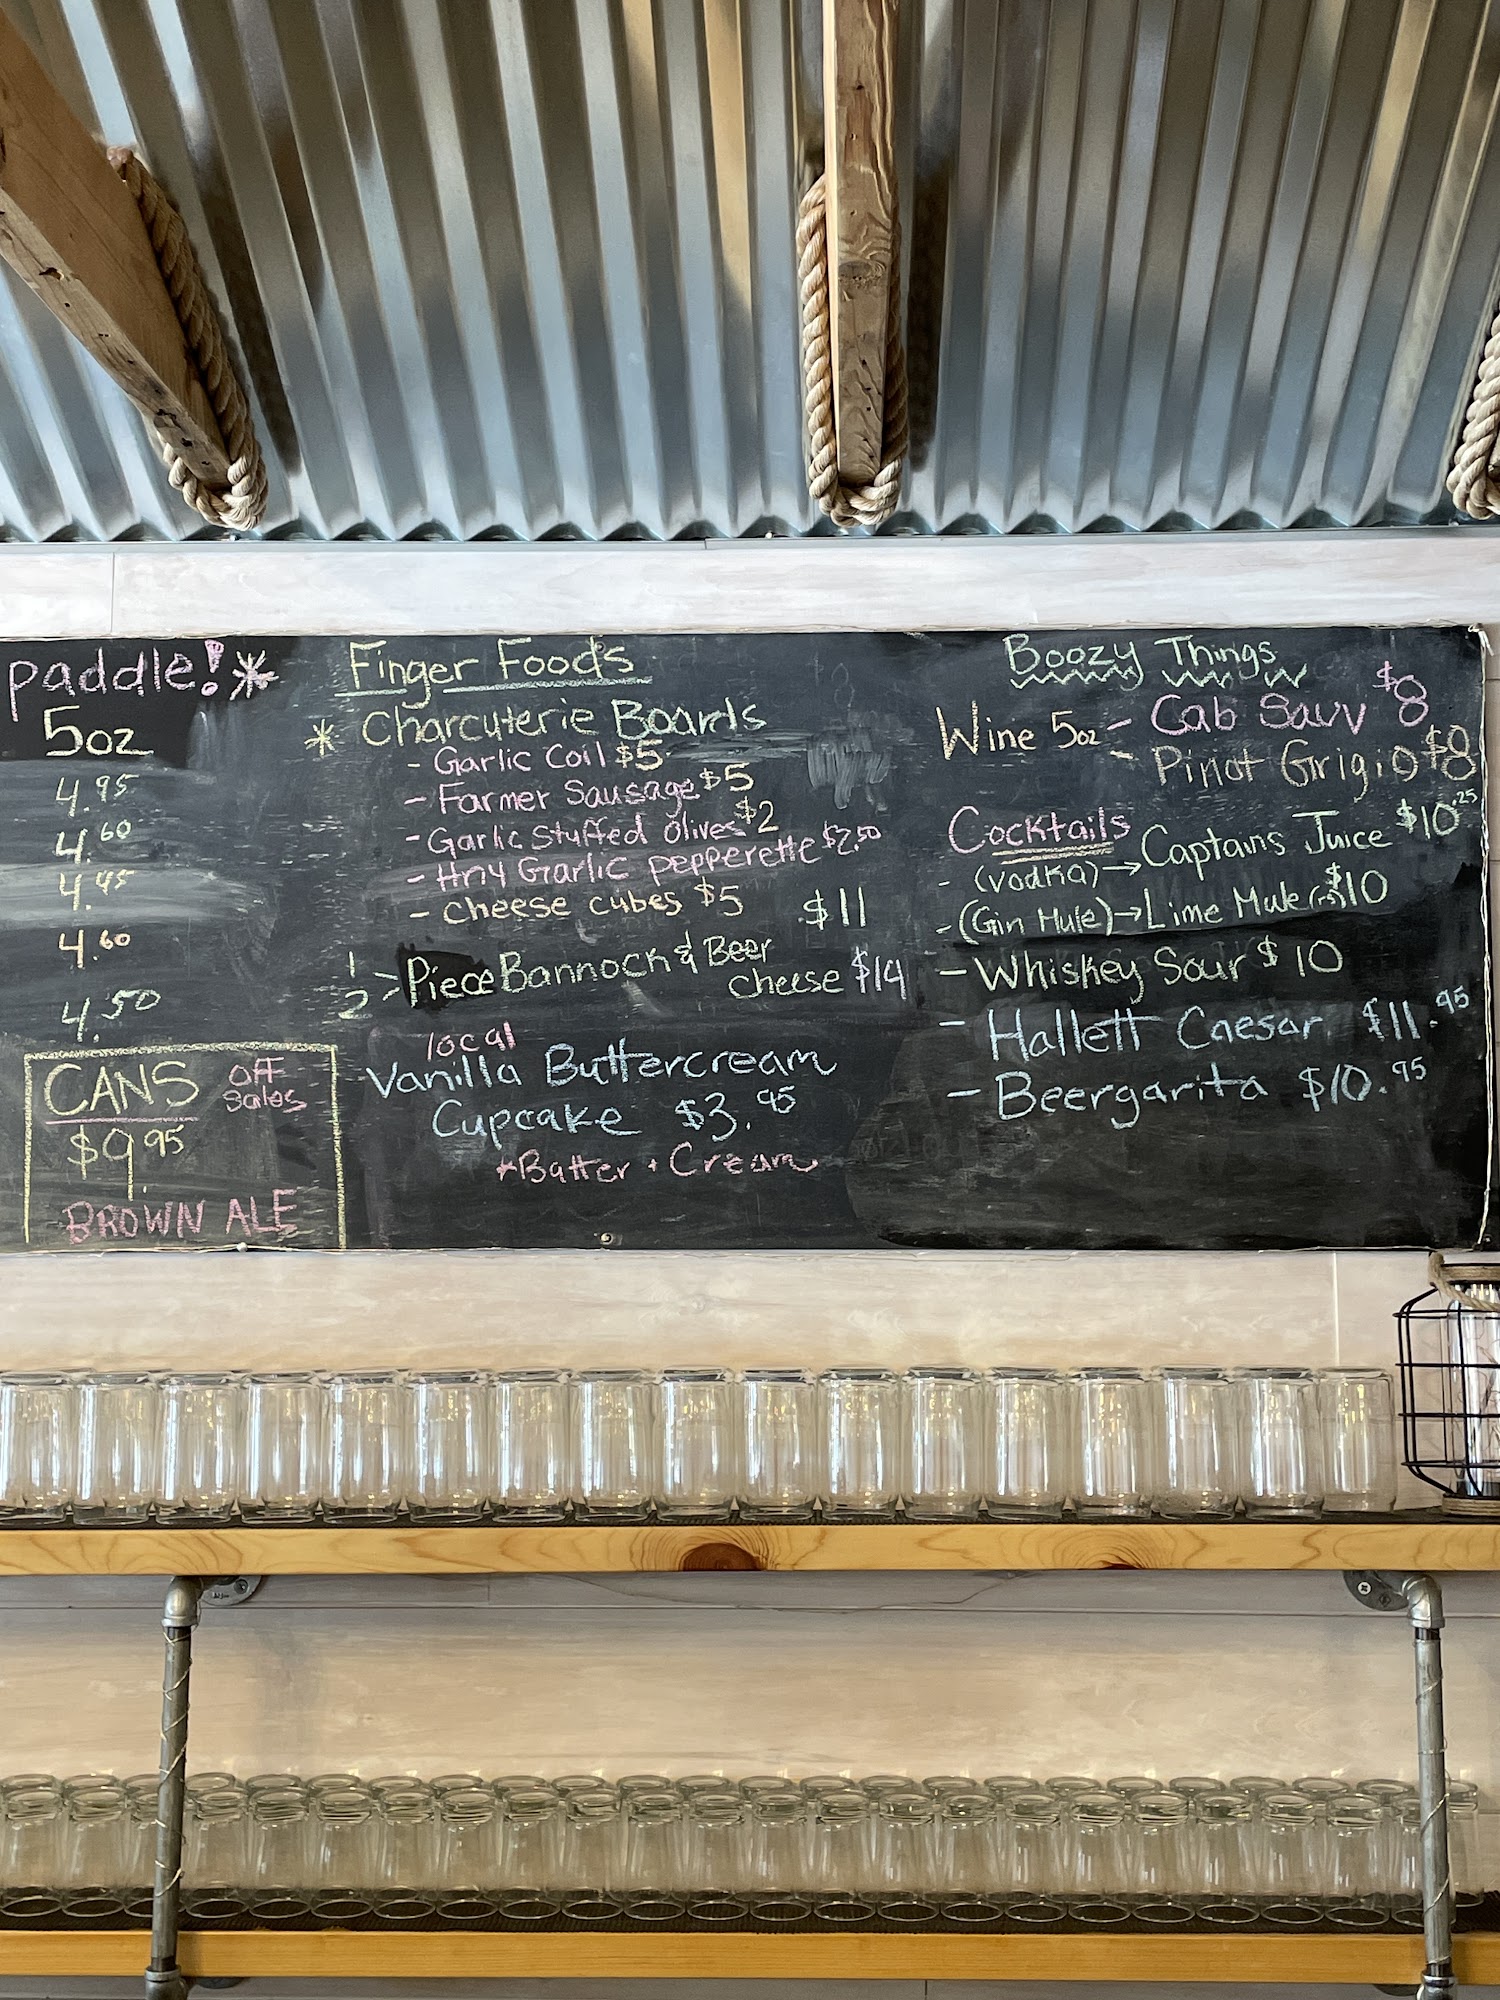 paddle!*
5oz
4.95
4.60
4.45
4.60
4.50
CANS off
Sales
$9.95
BROWN ALE
Finger Foods
* Charcuterie Boards
- Garlic Coil $5
- Farmer Sausage $5
- Garlic Stuffed Olives $2
- Hny Garlic pepperette $2.50
- Cheese cubes $5
1 $11
2 > Piece Bannock & Beer
cheese $14
local
Vanilla Buttercream
Cupcake $3.95
*Batter + Cream
Boozy Things
Wine 5oz - Cab Sauv $8
- Pinot Grigio $8
Cocktails
- (vodka) → Captains Juice $10.25
- (Gin Mule) → Lime Mule $10
- Whiskey Sour $10
- Hallett Caesar $11.95
- Beergarita $10.95